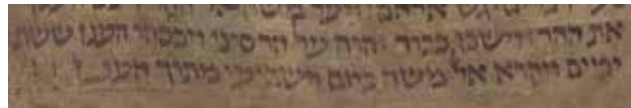 יגש אלהם ויעל משה
את ההר וישכן כבוד יהוה על הר סיני ויכסהו הענן ששת
ימים ויקרא אל משה ביום השביעי מתוך הענן